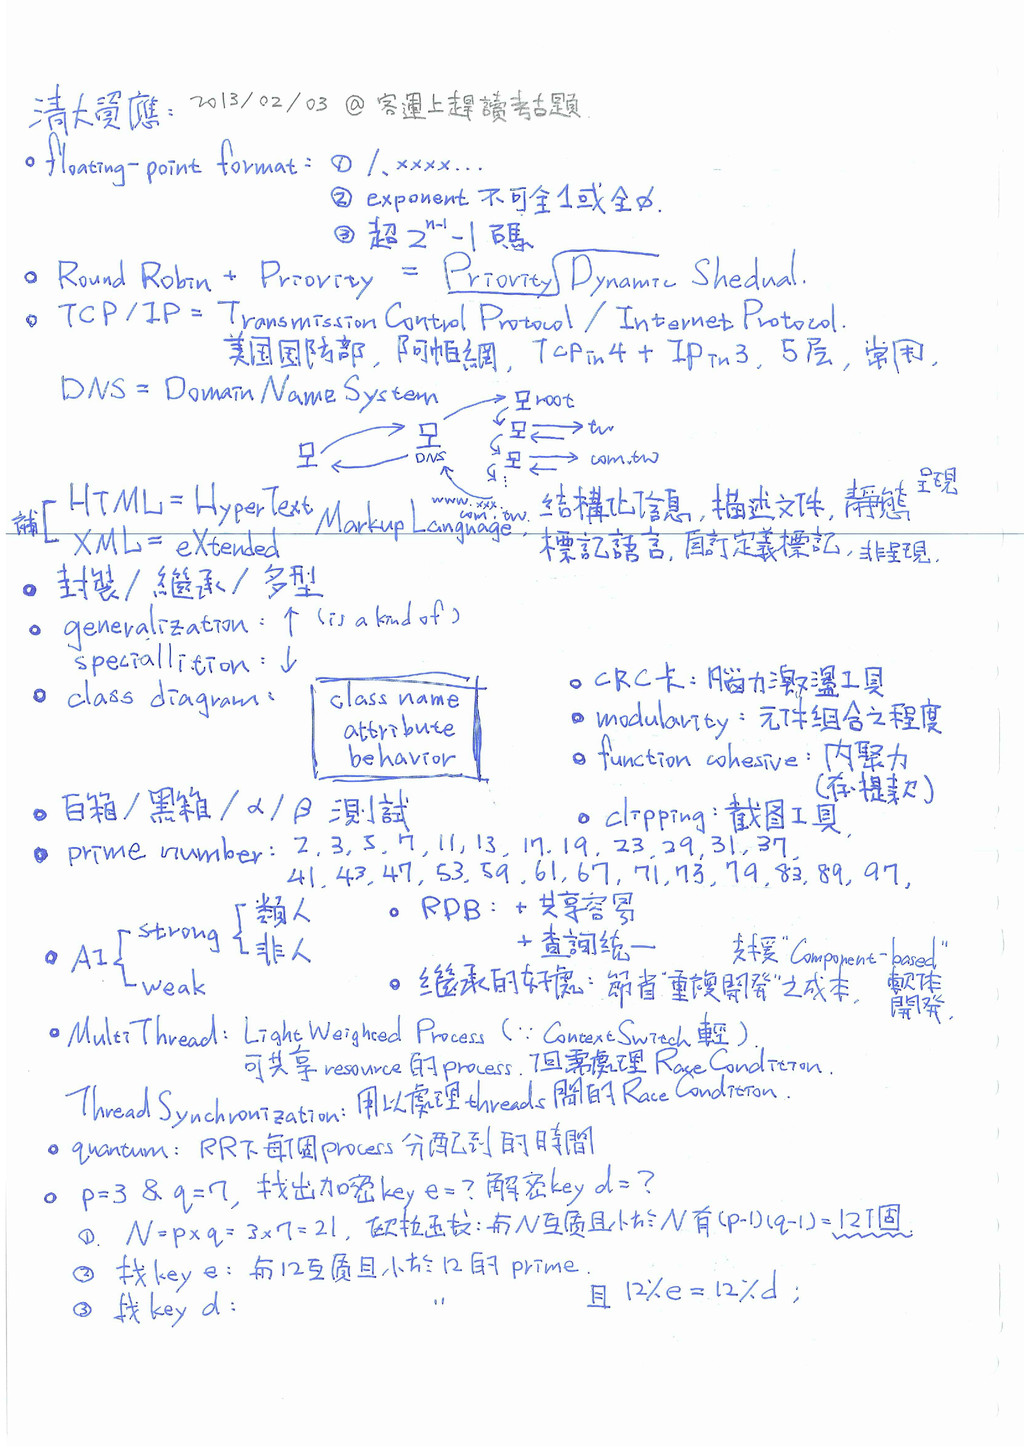 清大資應： 2013/02/03 @ 客運上趕讀考古題
floating-point format： ① 1.xxxx...
② exponent 不可全1或全0.
③ 超 2^(n-1) -1 碼
Round Robin + Priority = Priority Dynamic Shedual.
TCP/IP = Transmission Control Protocol / Internet Protocol.
美国国防部, 阿帕網, TCP in 4 + IP in 3, 5层, 常用.
DNS = Domain Name System
root
tw
DNS
com.tw
www.xxx.com.tw
補
HTML = HyperText
XML = eXtended
Markup Language,
結構化信息, 描述文件, 靜態呈現
標記語言, 自訂定義標記, 非呈現.
封裝/繼承/多型
generalization：↑ (is a kind of)
speciallition：↓
class diagram：
class name
attribute
behavior
CRC卡：腦力激盪工具
modularity：元件組合之程度
function cohesive：内聚力
(存提款)
白箱/黑箱/α/β 測試
clipping：截图工具.
prime number：2, 3, 5, 7, 11, 13, 17, 19, 23, 29, 31, 37,
41, 43, 47, 53, 59, 61, 67, 71, 73, 79, 83, 89, 97,
AI
strong
類人
非人
weak
RDB：+ 共享容易
+ 查詢統一
繼承的好處：節省"重複開發"之成本,
支援"Component-based"
軟体
開發.
Multi Thread：Light Weighted Process (∵ Context Switch 輕).
可共享 resource 的 process. 但需處理 Race Condition.
Thread Synchronization：用以處理 threads 間的 Race Condition.
quantum：RR下每個process 分配到的時間
p=3 & q=7, 找出加密key e=? 解密key d=?
①. N=p×q = 3×7=21, 欧拉函数：与N互质且小於N有(p-1)(q-1)=12個.
② 找 key e：与12互质且小於12的 prime.
③ 找 key d： " 且 12%e = 12%d ;